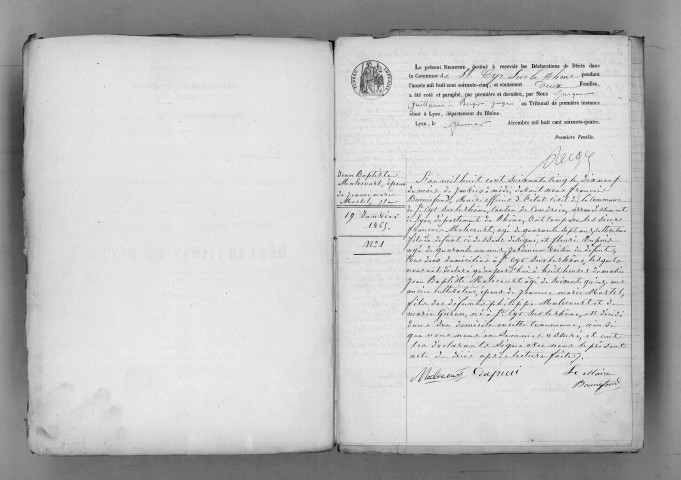 Le présent Registre, destiné à recevoir les Déclarations de Décès dans
la Commune de St Cyr Sur le Rhône pendant
l'année mil huit cent soixante-cinq, et contenant Deux Feuilles,
a été coté et paraphé, par première et dernière, par Nous
Guillaume Berger juge au Tribunal de première instance
séant à Lyon, département du Rhône.
Lyon, le décembre mil huit cent soixante-quatre.
Première Feuille.
Berger
Jean Baptiste
Malescourt, époux
de Jeanne marie
Martel
19 Janvier
1865.
No 1
L'an mil huit cent soixante cinq le dix neuf
du mois de Janvier à midi, devant nous françois
Bonnefond, Maire officier de l'état civil de la Commune
de St Cyr sur le rhône, Canton de Condrieu, arrondissement
de Lyon, département du Rhône, Ont comparu les sieurs
françois Malescourt, agé de quarante sept ans,
fils du défunt ci dessous désigné, et fleury Dupuis
agé de quarante un ans, voisin du défunt,
tous deux domiciliés à St Cyr sur le rhône, lesquels
nous ont déclaré qu'aujourd'hui à huit heures du matin
Jean Baptiste Malescourt agé de soixante quinze ans
ancien cultivateur, époux de Jeanne marie Martel,
fils des défunts philippe Malescourt et de
marie Guzon, né à St Cyr sur le rhône, est décédé
dans son domicile en cette Commune, ainsi
que nous nous en sommes assuré, et ont
les déclarants signé avec nous le présent
acte de décès après lecture faite.
Malescourt Dupuis Le Maire
Bonnefond